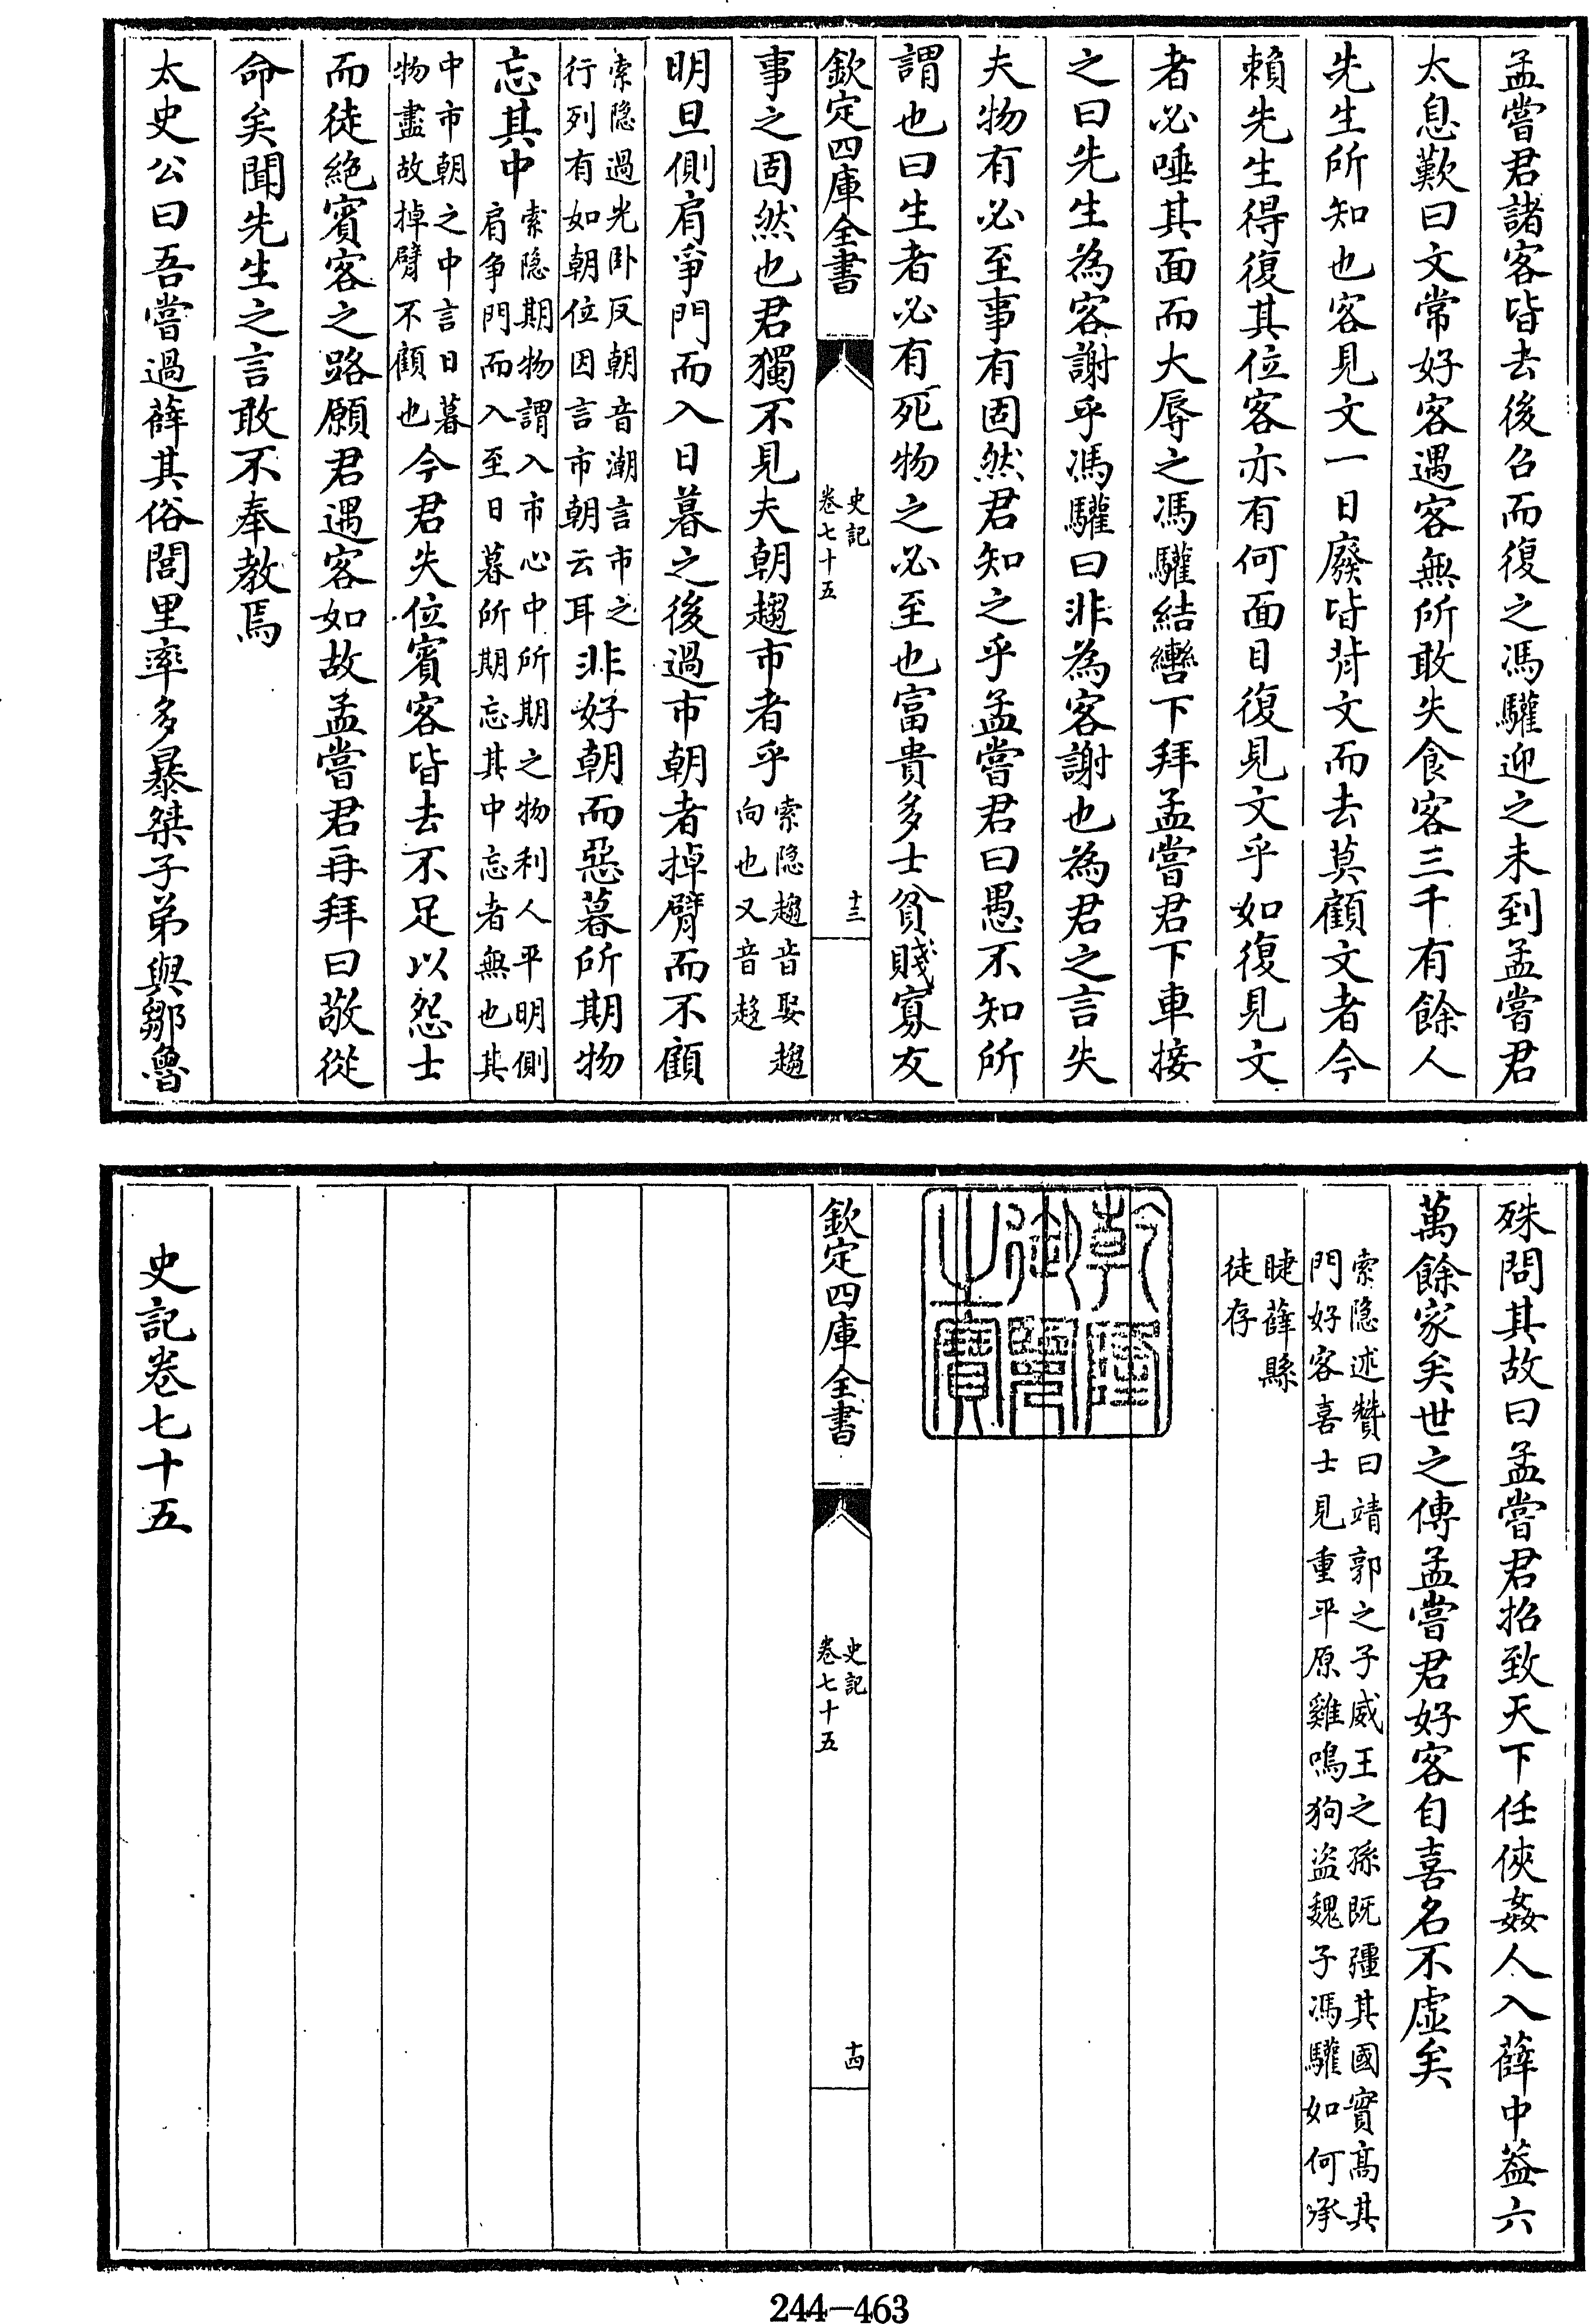 孟嘗君諸客皆去後召而復之馮驩迎之未到孟嘗君
太息歎曰文常好客遇客無所敢失食客三千有餘人
先生所知也客見文一日廢皆背文而去莫顧文者今
賴先生得復其位客亦有何面目復見文乎如復見文
者必唾其面而大辱之馮驩結轡下拜孟嘗君下車接
之曰先生為客謝乎馮驩曰非為客謝也為君之言失
夫物有必至事有固然君知之乎孟嘗君曰愚不知所
謂也曰生者必有死物之必至也富貴多士貧賤寡友
欽定四庫全書
史記
卷七十五
十三
事之固然也君獨不見夫朝趨市者乎
索隐趨音娶趨
向也又音趍
明旦側肩爭門而入日暮之後過市朝者掉臂而不顧
索隐過光卧反朝音潮言市之
行列有如朝位因言市朝云耳
非好朝而惡暮所期物
忘其中
索隐期物謂入市心中所期之物利人平明側
肩争門而入至日暮所期忘其中忘者無也其
中市朝之中言日暮
物盡故掉臂不顧也
今君失位賓客皆去不足以怨士
而徒絶賓客之路願君遇客如故孟嘗君再拜曰敬從
命矣聞先生之言敢不奉教焉
太史公曰吾嘗過薛其俗閭里率多暴桀子弟與鄒魯
殊問其故曰孟嘗君招致天下任俠姦人入薛中葢六
萬餘家矣世之傳孟嘗君好客自喜名不虛矣
索隐述贊曰靖郭之子威王之孫既彊其國實髙其
門好客喜士見重平原雞鳴狗盗魏子馮驩如何承
睫薛縣
徒存
乾隆御覽之寶
欽定四庫全書
史記
卷七十五
十四
史記卷七十五
244-463